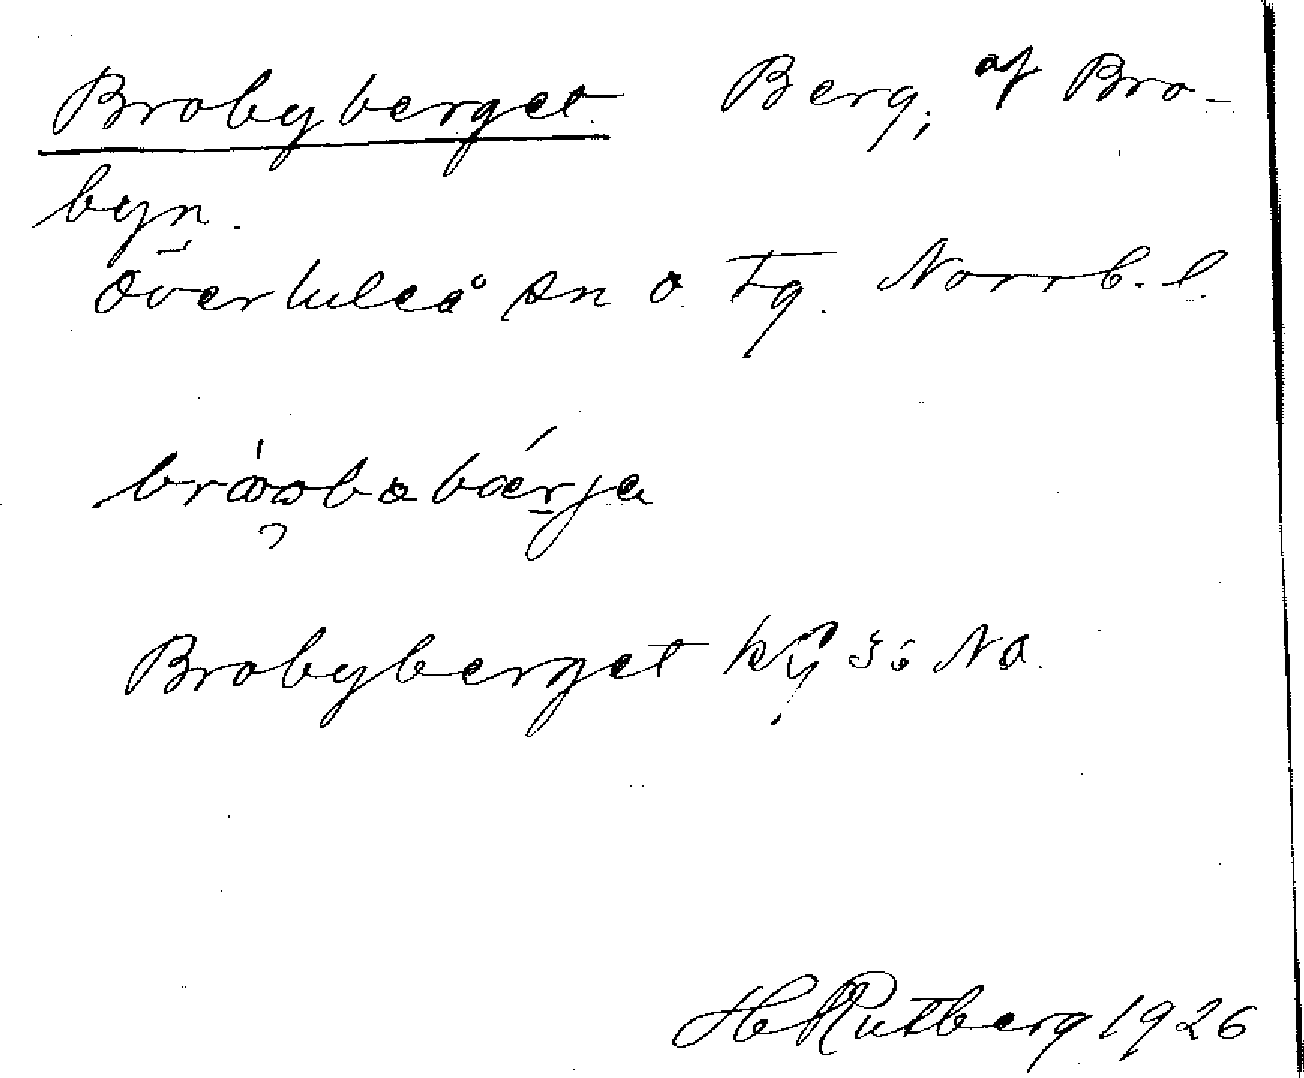 Brobyberget. Berg, af Bro-
byn.
Överluleå sn o. Tg. Norrb. l.
Brobyberget kg 36 NO.
H Rutberg 1926